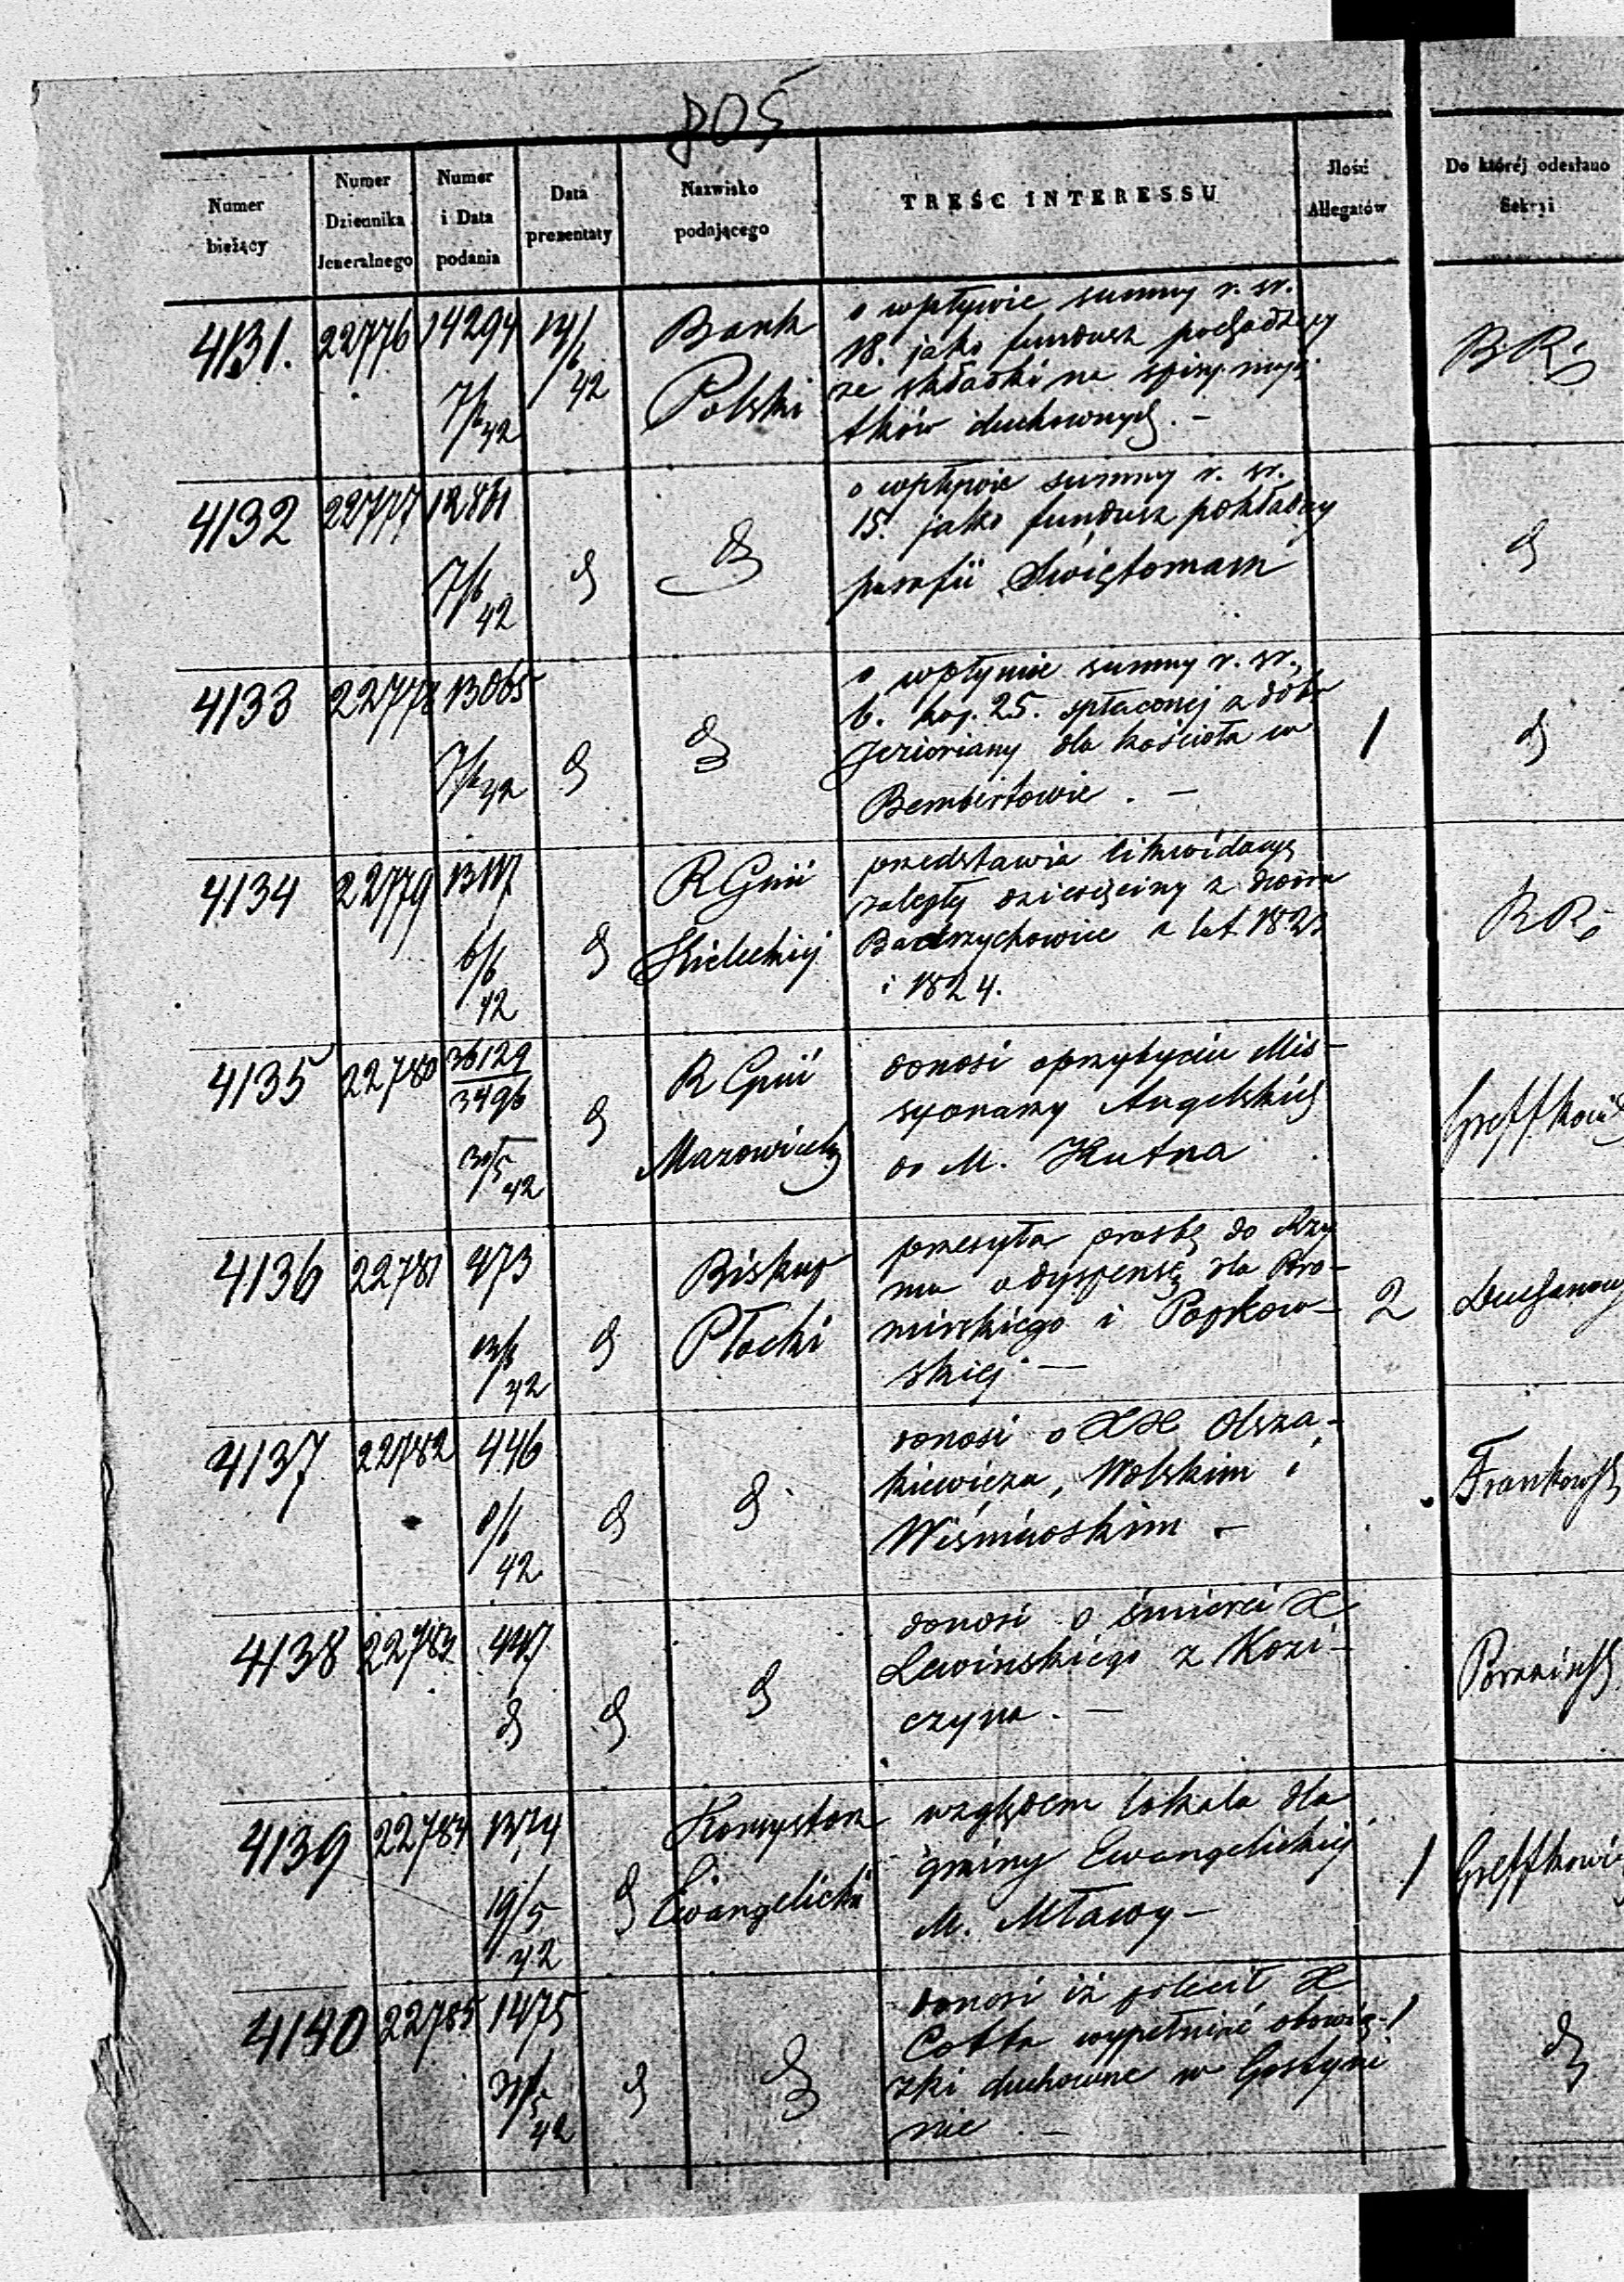 805
Numer bieżący
Numer Dziennika Jeneralnego
Numer i Data podania
Data prezentaty
Nazwisko podającego
TREŚĆ INTERESSU
Jlość Allegatów
Do której odesłano Sekcyi
4131. 22776 14294 7/6 42 14/6 42
Bank
Polski
o wpływie summy r. sr.
18. jako fundusz pochodzący
ze składki na spisy mają
tków duchownych. -
4132 22777 7/6 42
o wpływie summy r. sr.
15. jako fundusz pokładny
parafii Świętomarz
4133 22778 13065 7/6 42
o wpłynie summy r. sr.
6. kop. 25. spłaconej z dóbr
Jezioriany dla kościoła w
Bembertowie. -
1
4134 22779 6/6 42
R Gnii
Kieleckiej
przedstawia likwidacyę
zaległej dziesięciny z dwora
i 1824.
4135 22780 36129 3496 30/5 42
R Gnii
donosi o przybyciu Mis-
syonarzy Angelskich
do M. Kutna
4136 22781 473 42
Biskup
Płocki
przesyła prosbę do Rzy
mu o dyspensę dla
i Popkow-
skiej. -
2
4137 22782 446 8/6 42
donosi o XX Olsza-
kiewicza, Wolskim i
4138 22783 447
donosi o śmierci X
Lewinskiego z Kozi-
czyna. -
4139 22784 19/5 42
Konsystorz
Ewangelicki
względem lokala dla
gminy Ewangelickiej
M. Mławy -
1
4140 22785 1475 42
donosi iż polecił X
Cotta wypełniać obowią-
zki duchowne w Gostyni
nie. -
1